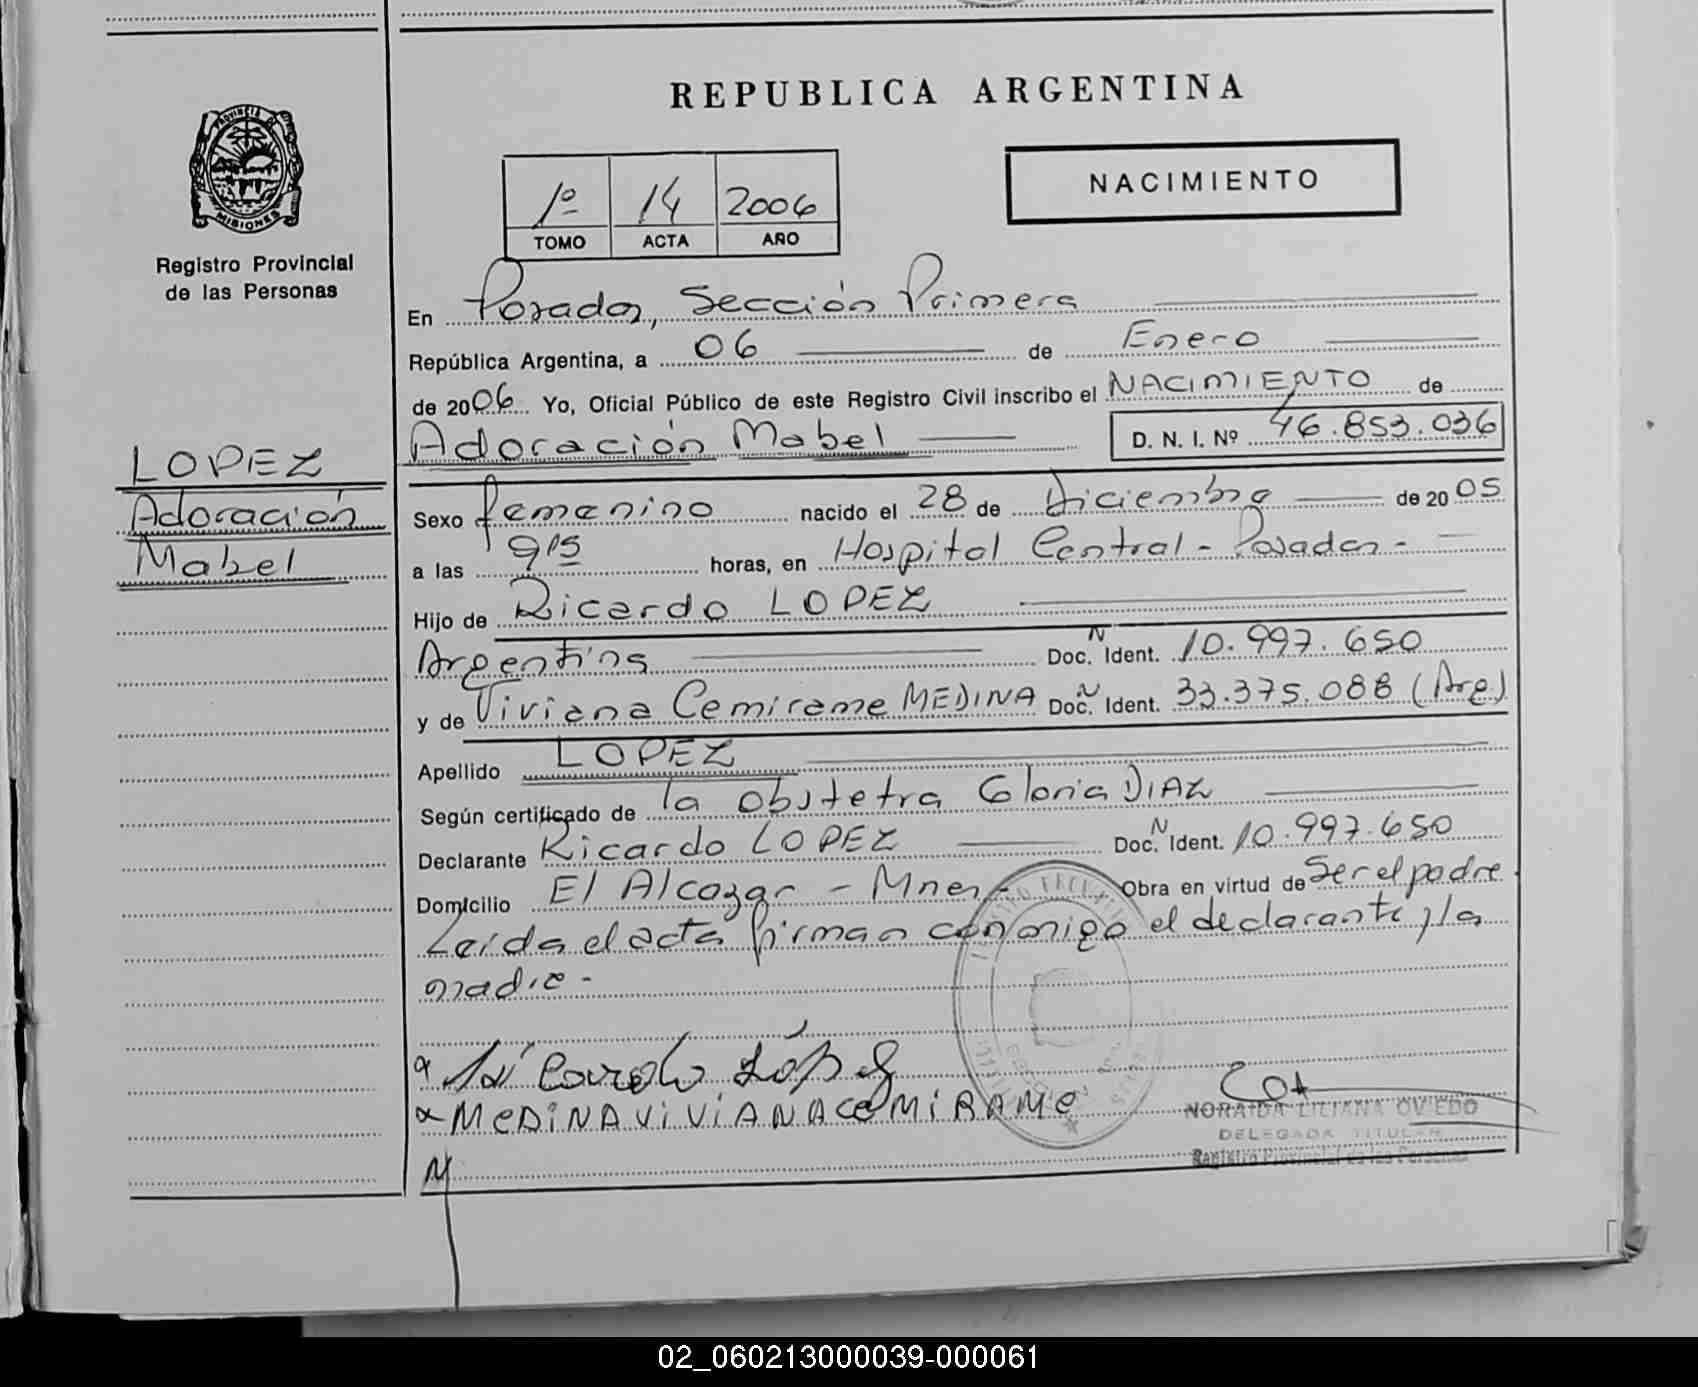 REPUBLICA ARGENTINA
PROVINCIA DE
MISIONES
Registro Provincial
de las Personas
1º 14 2006
TOMO ACTA AÑO
NACIMIENTO
En Posadas, Sección Primera
República Argentina, a 06 de Enero
de 2006 Yo, Oficial Público de este Registro Civil inscribo el NACIMIENTO de
Adoración Mabel D. N. I. Nº 46.853.036
LOPEZ
Adoración
Mabel
Sexo femenino nacido el 28 de Diciembre de 2005
a las 9 15 horas, en Hospital Central - Posadas -
Hijo de Ricardo LOPEZ
Argentina Doc. N Ident. 10.997.650
y de Viviana Cemirame MEDINA Doc. N Ident. 33.375.088 (Arg)
Apellido LOPEZ
Según certificado de la obstetra Gloria DIAZ
Declarante Ricardo LOPEZ Doc. N Ident. 10.997.650
Domicilio El Alcazar - Mnes - Obra en virtud de Ser el padre.
Leída el acta firman conmigo el declarante y la
madre -
Ricardo López
MEDINA VIVIANA CEMIRAME
NORAIDA LILIANA OVIEDO
DELEGADA TITULAR
Registro Provincial de las Personas
02_060213000039-000061